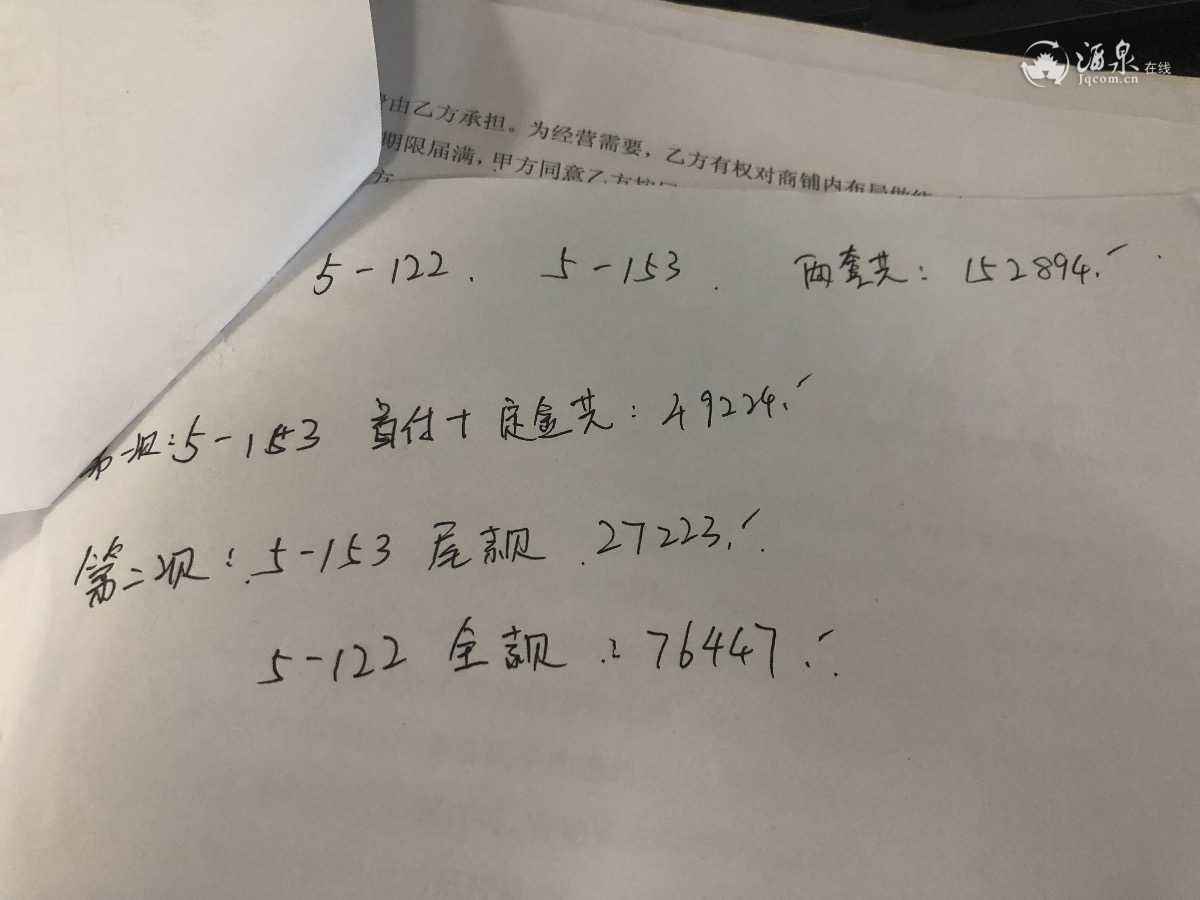 酒泉在线
Jqcom.cn
由乙方承担。为经营需要，乙方有权对商铺内布局做
期限届满，甲方同意乙方按
方
5-122. 5-153. 两套共：152894.
第一次：5-153 首付+定金共：49224.
第二次：5-153 尾款 27223.
5-122 全款：76447.